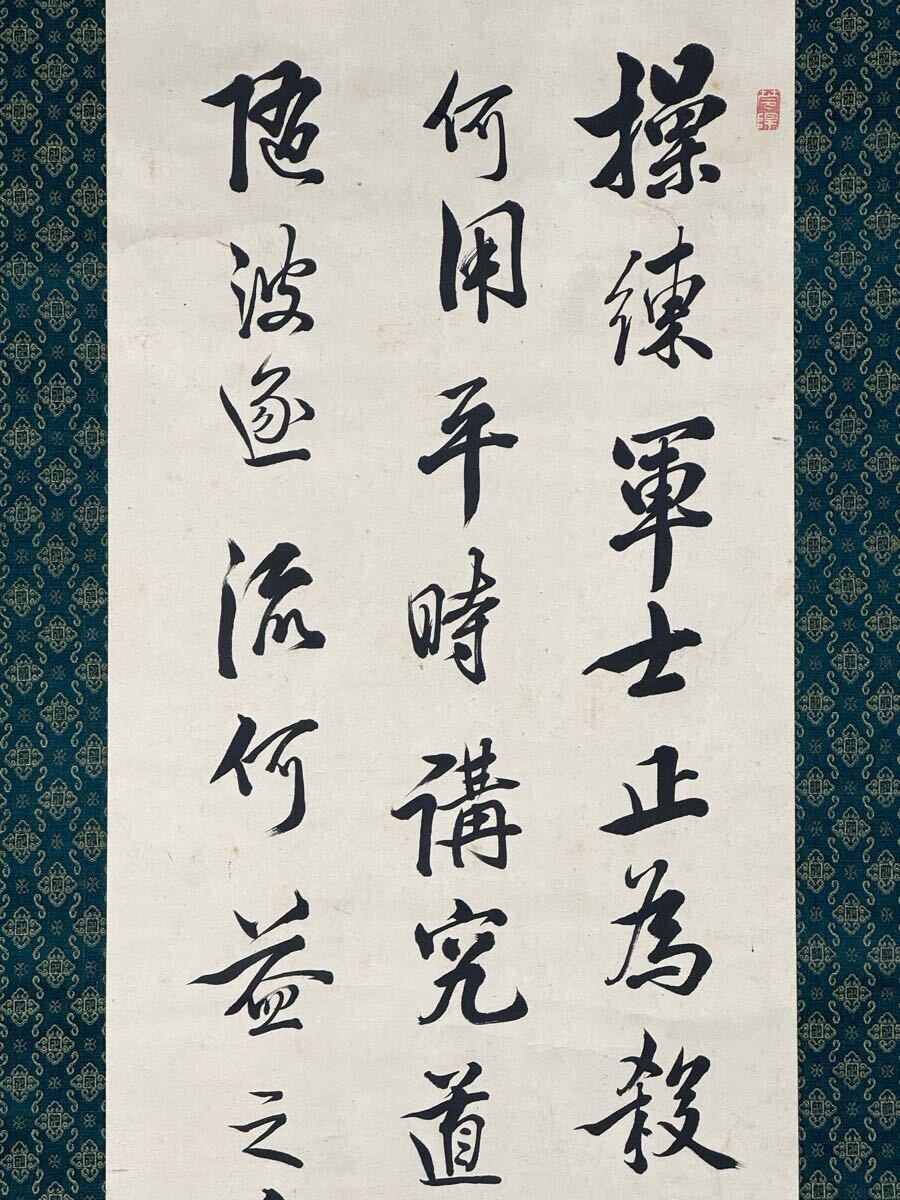 操練軍士止為殺
何用平時講究道
随波逐流何益之